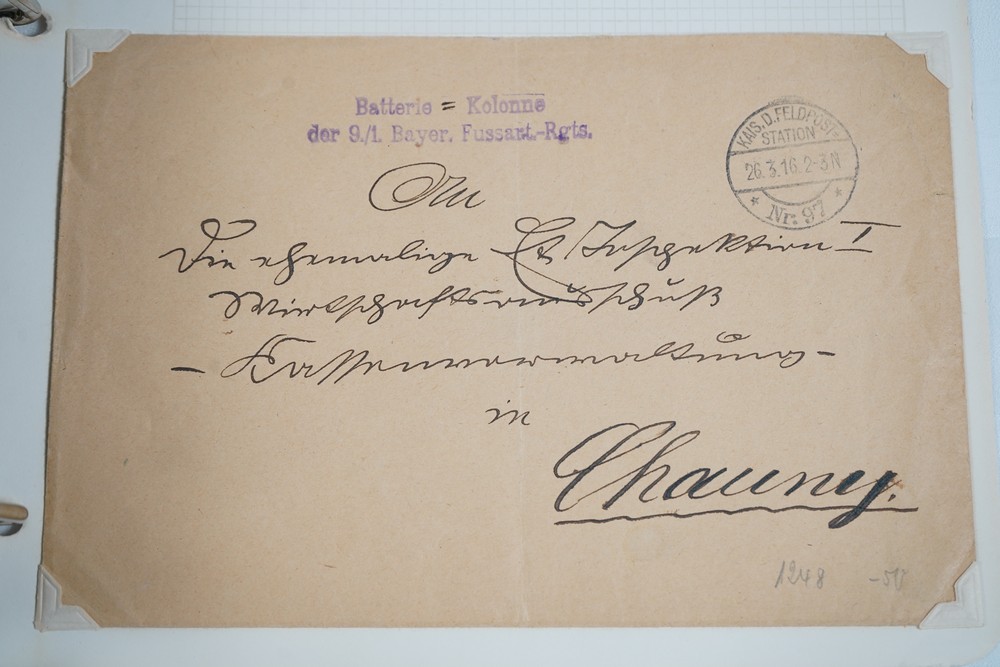 Batterie = Kolonne
der 9./1. Bayer. Fussart.-Rgts.
KAIS. D. FELDPOST-
STATION
26.3.16. 2-3 N
* Nr. 97 *
An
Die ehemalige Et. Inspektion I
Wirtschaftsausschuß
- Kassenverwaltung -
in
Chauny.
1248